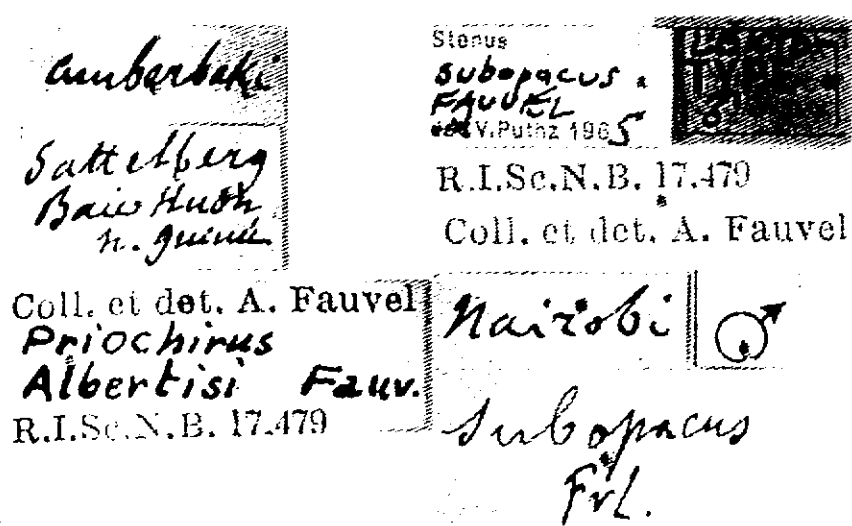 amberbaki
Sattelberg
Baie Huon
n. guinée
Coll. et det. A. Fauvel
Priochirus
Albertisi Fauv.
R.I.Sc.N.B. 17.479
Stenus
subopacus
FAUVEL
det V.Puthz 1965
TYPE
♂
R.I.Sc.N.B. 17.479
Coll. et det. A. Fauvel
Nairobi
♂
Subopacus
Fvl.